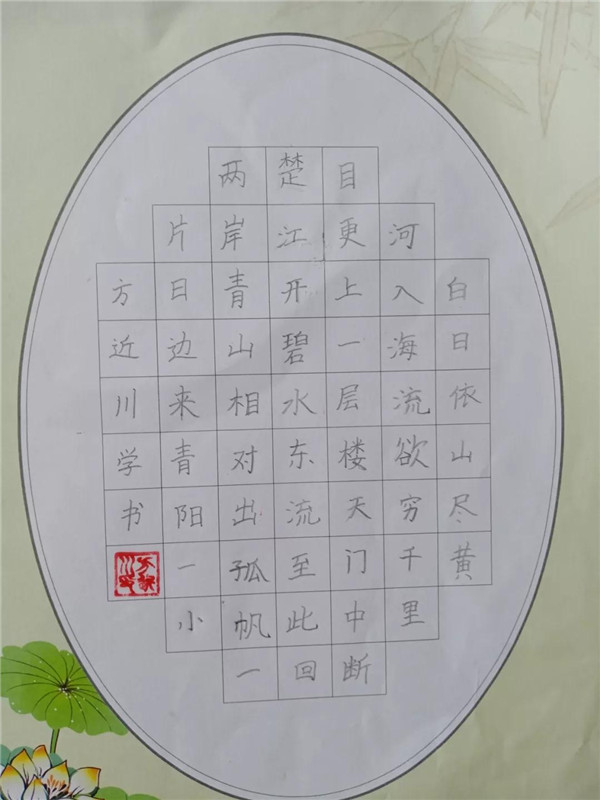 白日依山尽黄
河入海流欲穷千里
目更上一层楼天门中断
楚江开碧水东流至此回
两岸青山相对出孤帆一
片日边来青阳一小
方近川学书